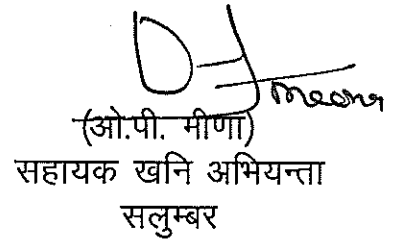 (ओ.पी. मीणा)
सहायक खनि अभियन्ता
सलुम्बर